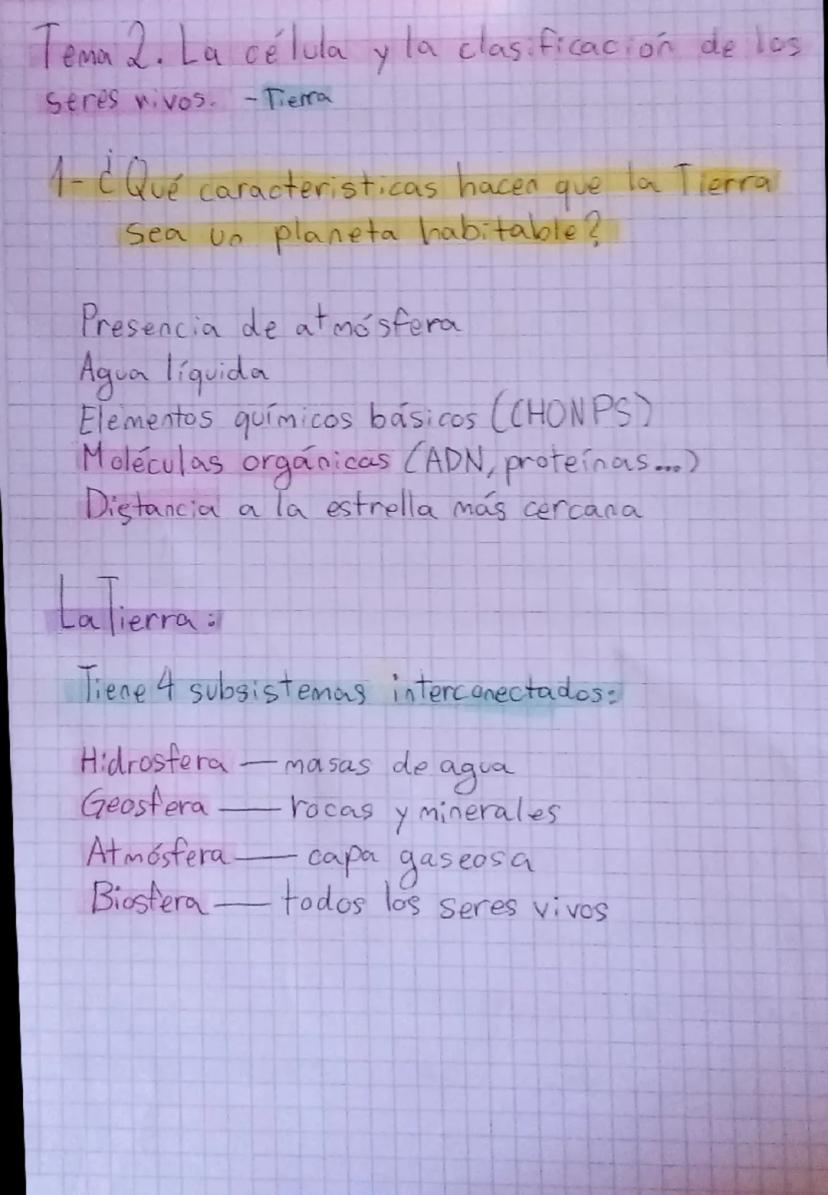 Tema 2. La célula y la clasificación de los
seres vivos. - Tierra
1- ¿Qué caracteristicas hacen que la Tierra
sea un planeta habitable?
Presencia de atmósfera
Agua líquida
Elementos químicos básicos (CHONPS)
Moléculas orgánicas (ADN, proteínas...)
Distancia a la estrella más cercana
La Tierra:
Tiene 4 subsistemas interconectados:
Hidrosfera — masas de agua
Geosfera — rocas y minerales
Atmósfera — capa gaseosa
Biosfera — todos los seres vivos